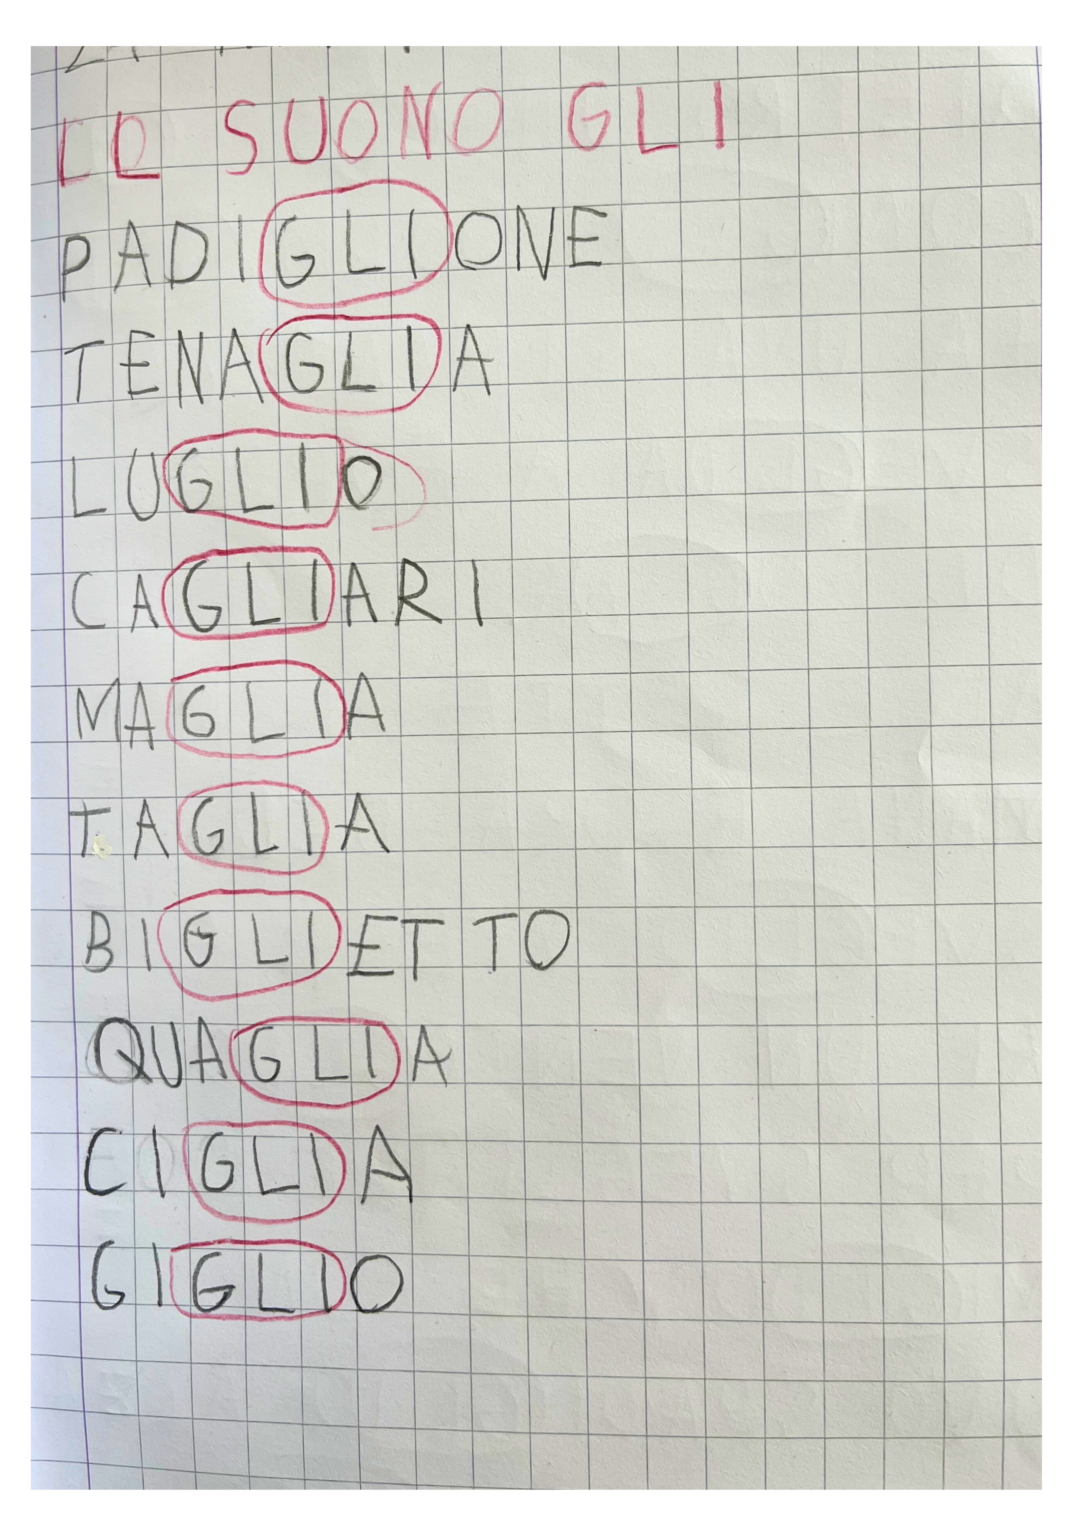 LE SUONO GLI
PADIGLIONE
TENAGLIA
LUGLIO
CAGLIARI
MAGLIA
TAGLIA
BIGLIETTO
QUAGLIA
CIGLIA
GIGLIO